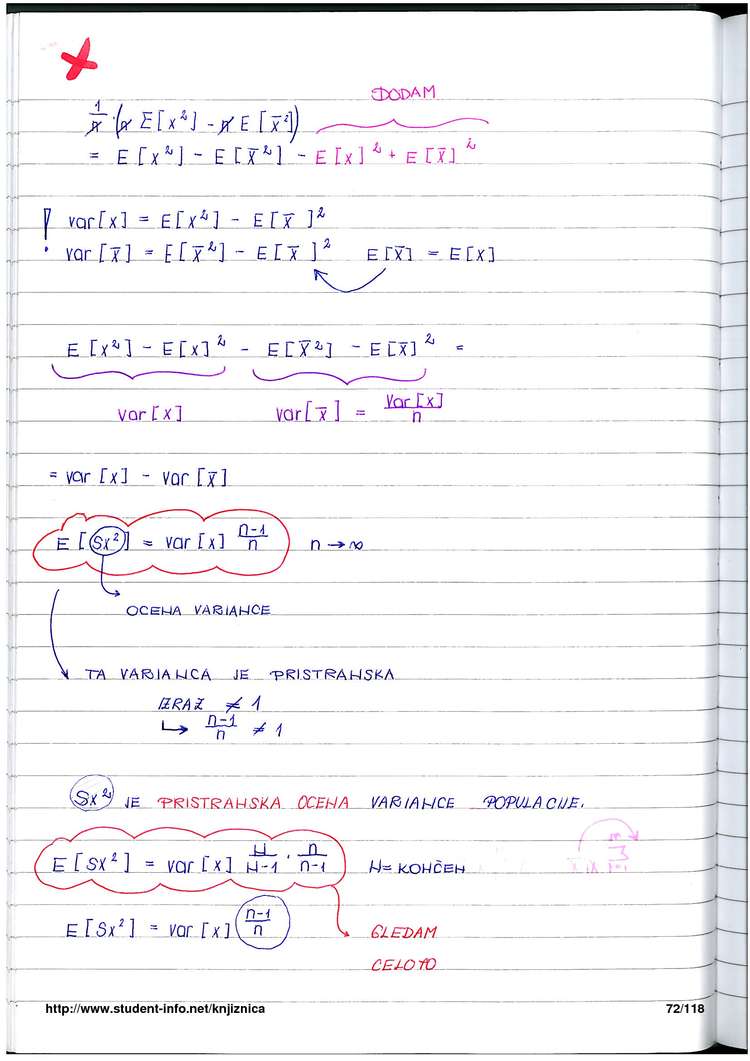 DODAM
1/n · (n E[x²] - n E[x̄²])
= E[x²] - E[x̄²] - E[x]² + E[x̄]²
! var[x] = E[x²] - E[x̄]²
var[x̄] = E[x̄²] - E[x̄]² E[x̄] = E[x]
E[x²] - E[x]² - E[x̄²] - E[x̄]² =
var[x] var[x̄] = var[x]/n
= var[x] - var[x̄]
E[Sx²] = var[x] n-1/n n → ∞
OCENA VARIANCE
TA VARIANCA JE PRISTRANSKA
IZRAZ ≠ 1
↳ n-1/n ≠ 1
Sx² JE PRISTRANSKA OCENA VARIANCE POPULACIJE.
E[Sx²] = var[x] N/N-1 · n/n-1 N = KONČEN
E[Sx²] = var[x] n-1/n GLEDAM
CELOTO
http://www.student-info.net/knjiznica 72/118